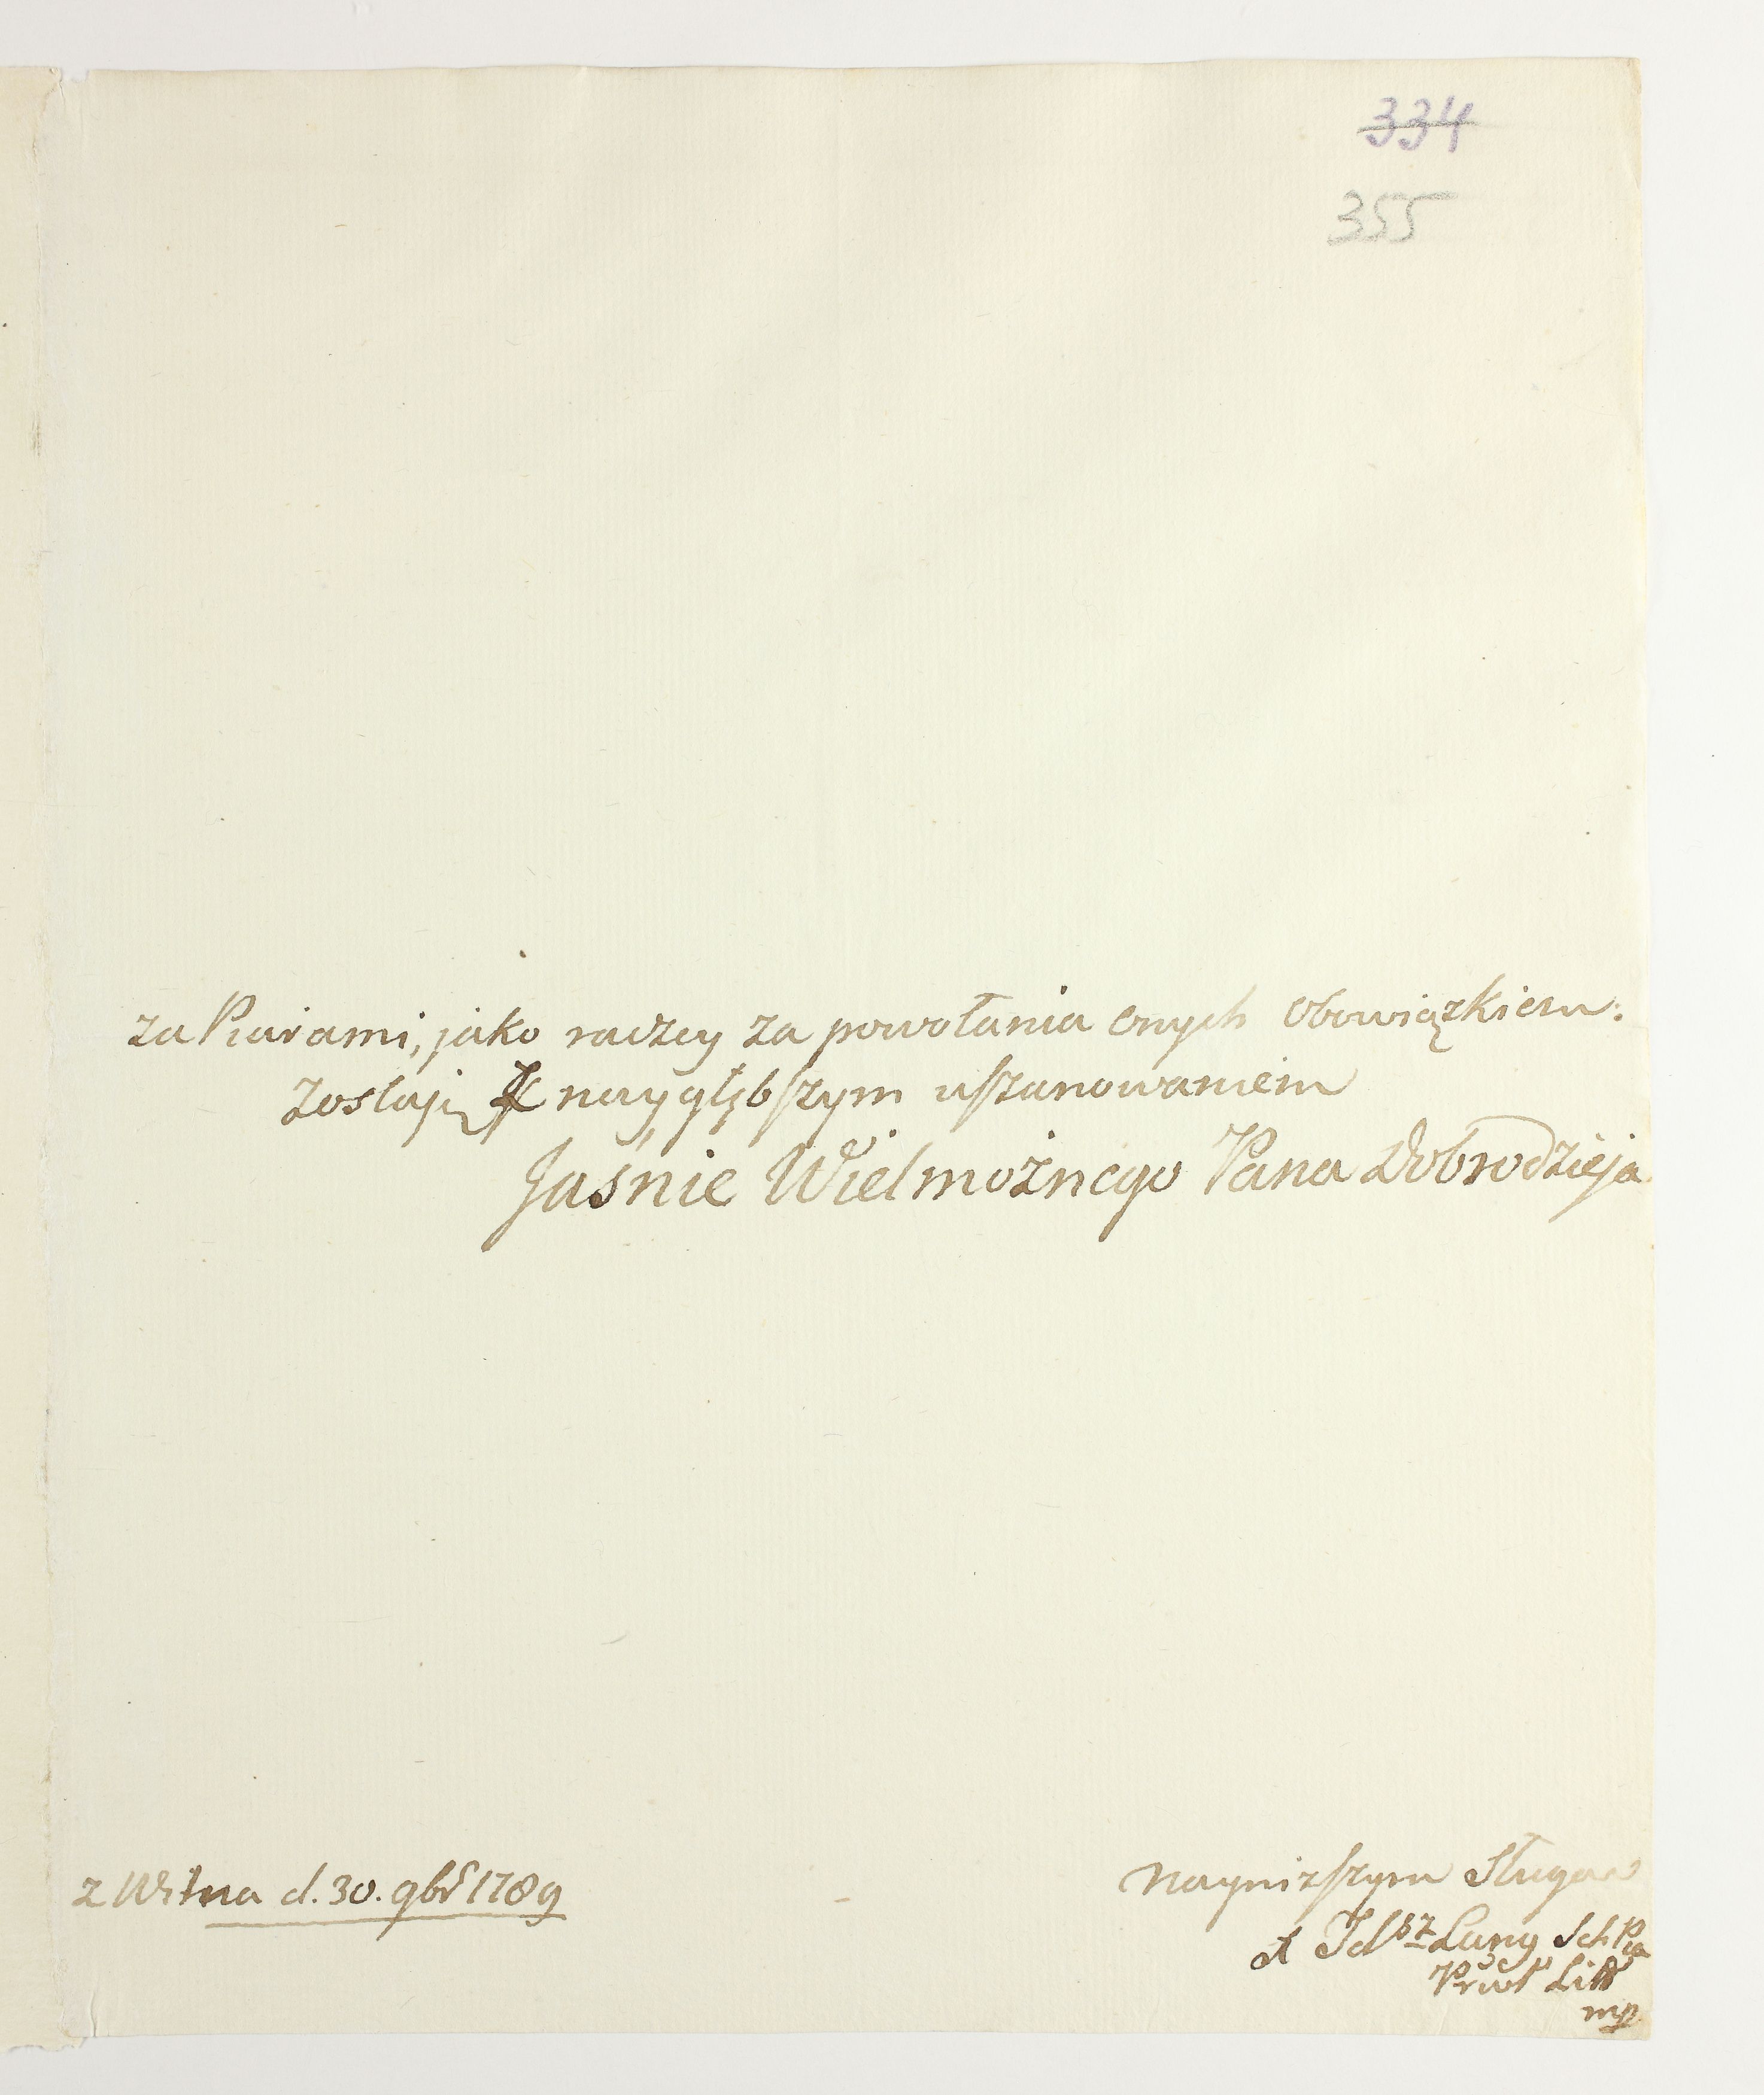 334
355
za Piarami, jako radzcy za powołania onych obowiązkiem:
zostaję Z naygłębszym uszanowaniem
Jaśnie Wielmożnego Pana Dobrodzieja
z Wilna d. 30. 9br 1789
Nayniższym Sługą
Łęgy Sch P
Litt
mp